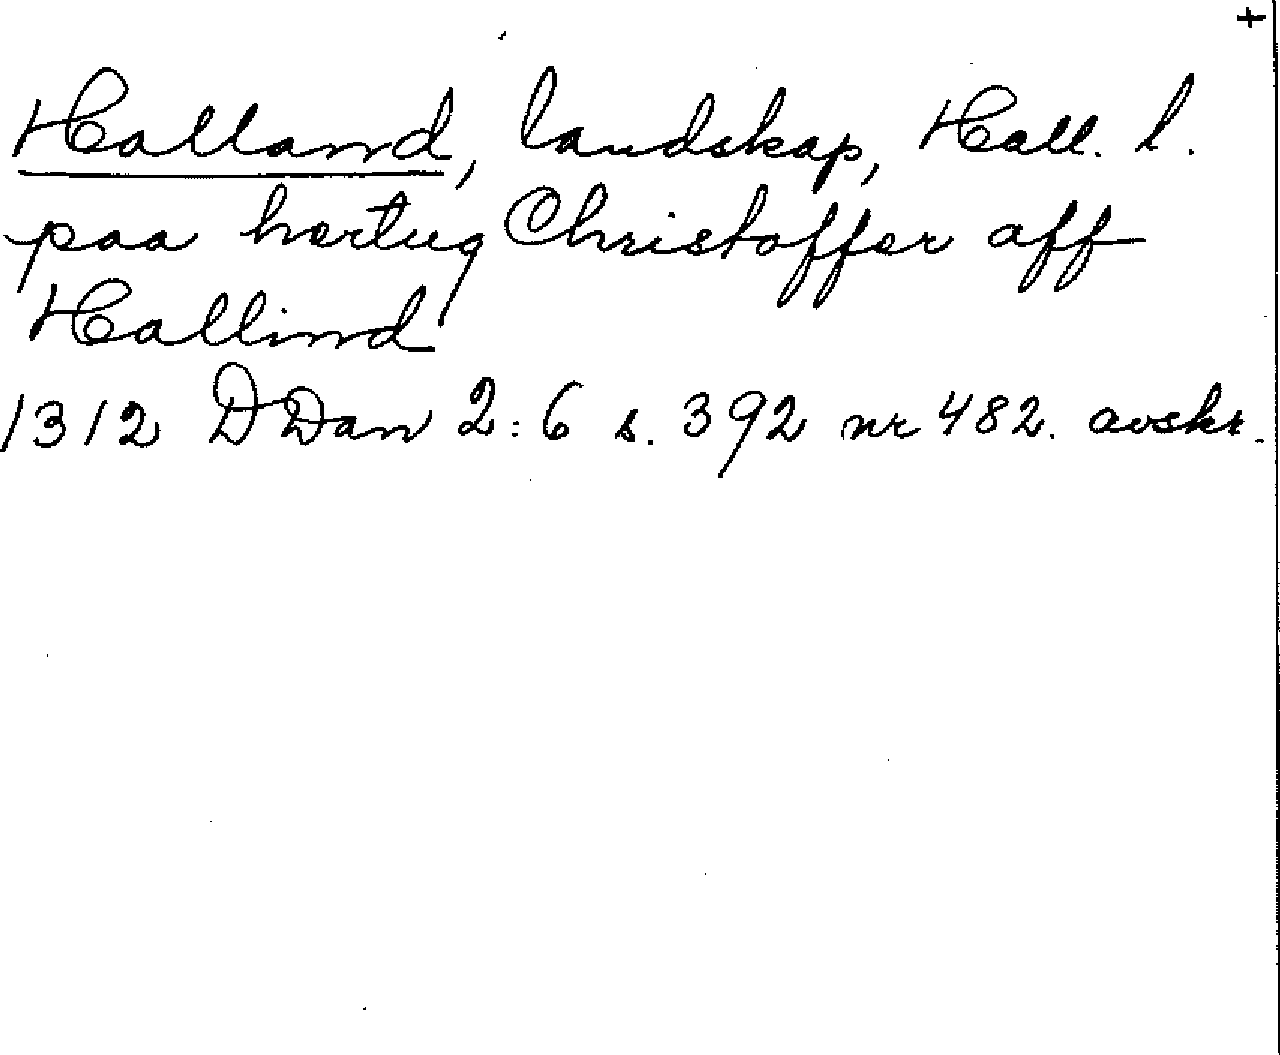 +
Halland, landskap, Hall. l.
paa hertug Christoffer aff
Hallind
1312 DDan 2:6 s. 392 nr 482. avskr.